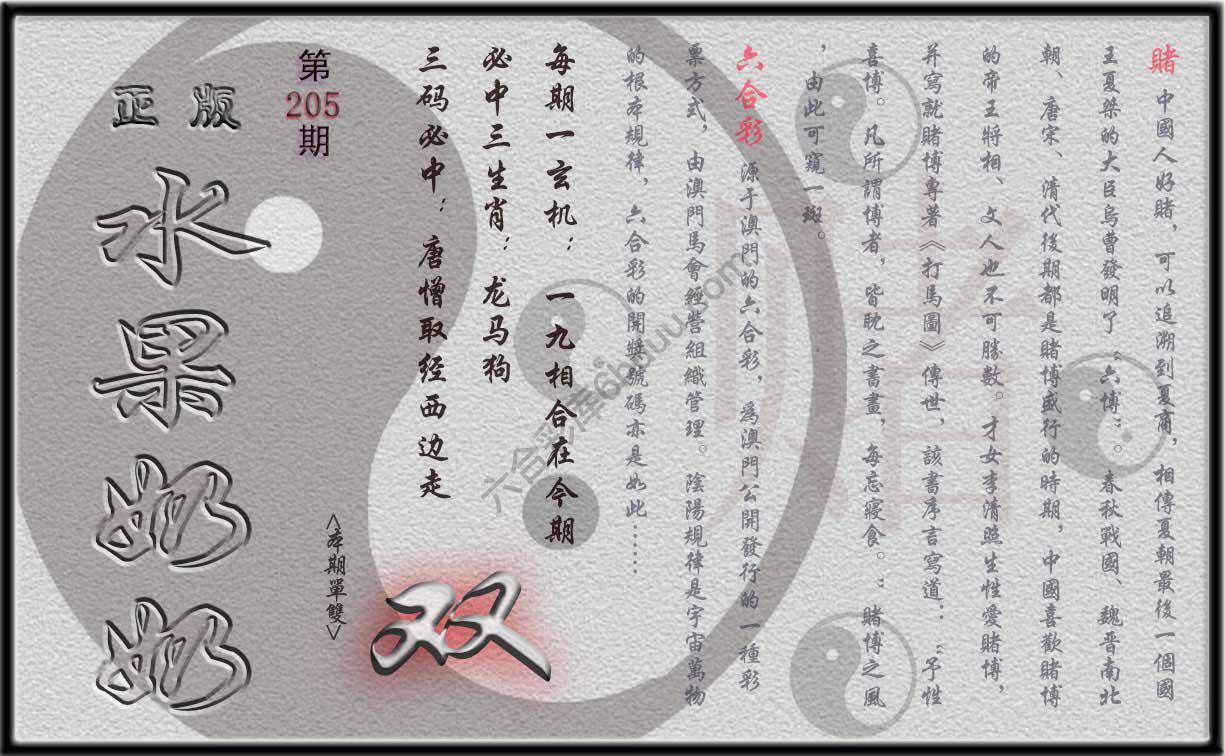 賭 中國人好賭，可以追溯到夏商，相傳夏朝最後一個國
王夏桀的大臣烏曹發明了“六博”。春秋戰國、魏晋南北
朝、唐宋、清代後期都是賭博盛行的時期，中國喜歡賭博
的帝王將相、文人也不可勝數。才女李清照生性愛賭博，
并寫就賭博專著《打馬圖》傳世，該書序言寫道：“予性
喜博。凡所謂博者，皆眈之書畫，每忘寢食。”賭博之風
，由此可窺一斑。
六合彩 源于澳門的六合彩，爲澳門公開發行的一種彩
票方式，由澳門馬會經營組織管理。陰陽規律是宇宙萬物
的根本規律，六合彩的開獎號碼亦是如此……
每期一玄机：一九相合在今期
必中三生肖：龙马狗
三码必中：唐憎取经西边走
第
205
期
<本期單雙>
双
正版
水果奶奶
賭
六合彩库6hduu.com